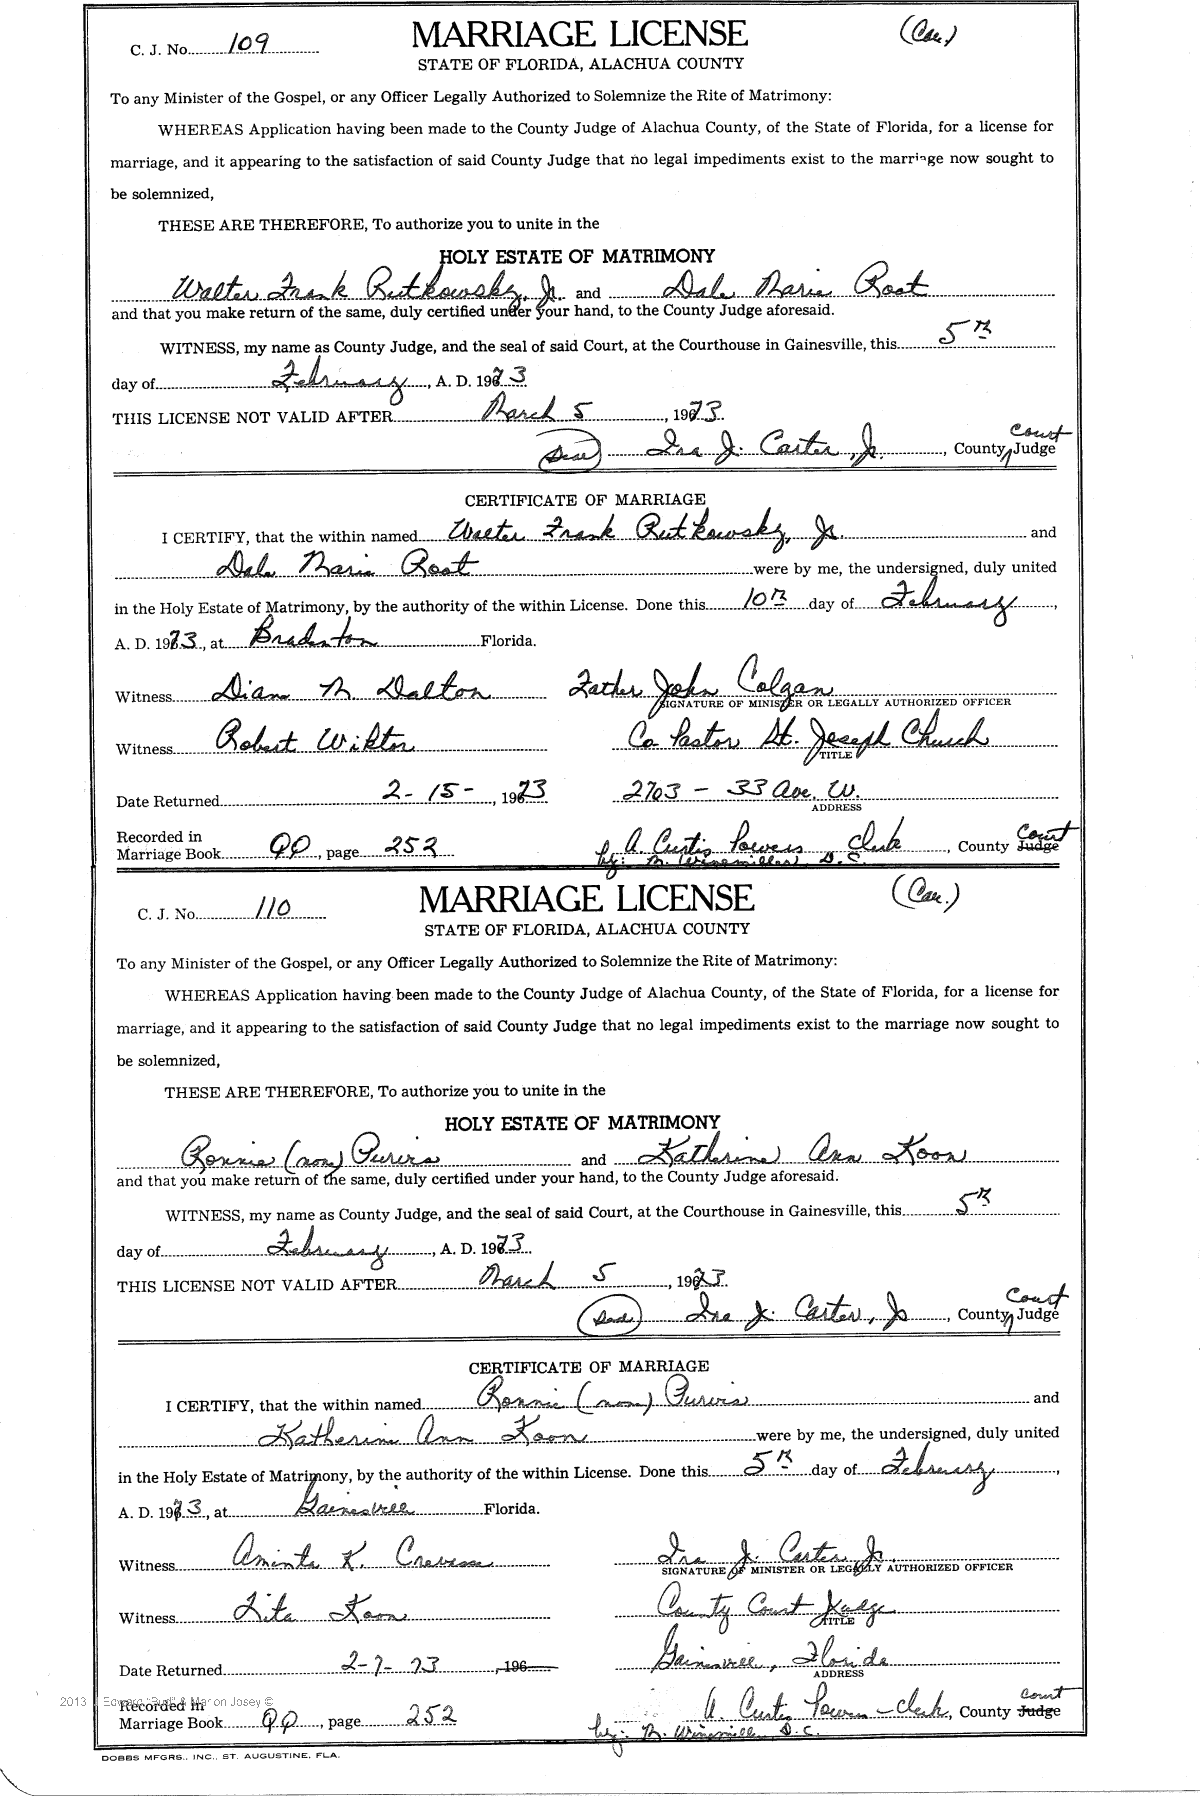 C. J. No. 109 MARRIAGE LICENSE (Cau.)
STATE OF FLORIDA, ALACHUA COUNTY
To any Minister of the Gospel, or any Officer Legally Authorized to Solemnize the Rite of Matrimony:
WHEREAS Application having been made to the County Judge of Alachua County, of the State of Florida, for a license for
marriage, and it appearing to the satisfaction of said County Judge that no legal impediments exist to the marriage now sought to
be solemnized,
THESE ARE THEREFORE, To authorize you to unite in the
HOLY ESTATE OF MATRIMONY
Walter Frank Rutkowsky, Jr. and Dale Marie Root
and that you make return of the same, duly certified under your hand, to the County Judge aforesaid.
WITNESS, my name as County Judge, and the seal of said Court, at the Courthouse in Gainesville, this 5th
day of February, A. D. 1973
THIS LICENSE NOT VALID AFTER March 5, 1973.
(Seal) Ira J. Carter, Jr., County Court Judge
CERTIFICATE OF MARRIAGE
I CERTIFY, that the within named Walter Frank Rutkowsky, Jr. and
Dale Marie Root were by me, the undersigned, duly united
in the Holy Estate of Matrimony, by the authority of the within License. Done this 10th day of February,
A. D. 1973, at Bradenton Florida.
Witness Diane M. Dalton Father John Colgan
SIGNATURE OF MINISTER OR LEGALLY AUTHORIZED OFFICER
Witness Robert Wiktor Co Pastor St. Joseph Church
TITLE
Date Returned 2-15-, 1973 2703 - 33 Ave. W.
ADDRESS
Recorded in
Marriage Book QQ, page 252 A Curtis Powers Clerk, County Court Judge
by: M. Winemiller, D. C.
C. J. No. 110 MARRIAGE LICENSE (Cau.)
STATE OF FLORIDA, ALACHUA COUNTY
To any Minister of the Gospel, or any Officer Legally Authorized to Solemnize the Rite of Matrimony:
WHEREAS Application having been made to the County Judge of Alachua County, of the State of Florida, for a license for
marriage, and it appearing to the satisfaction of said County Judge that no legal impediments exist to the marriage now sought to
be solemnized,
THESE ARE THEREFORE, To authorize you to unite in the
HOLY ESTATE OF MATRIMONY
Ronnie (non) Purvis and Katherine Ann Koon
and that you make return of the same, duly certified under your hand, to the County Judge aforesaid.
WITNESS, my name as County Judge, and the seal of said Court, at the Courthouse in Gainesville, this 5th
day of February, A. D. 1973.
THIS LICENSE NOT VALID AFTER March 5, 1973.
(Seal) Ira J. Carter, Jr, County Court Judge
CERTIFICATE OF MARRIAGE
I CERTIFY, that the within named Ronnie (non) Purvis and
Katherine Ann Koon were by me, the undersigned, duly united
in the Holy Estate of Matrimony, by the authority of the within License. Done this 5th day of February,
A. D. 1973, at Gainesville Florida.
Witness Aminta K. Ira J. Carter, Jr.
SIGNATURE OF MINISTER OR LEGALLY AUTHORIZED OFFICER
Witness Lita Koon County Court Judge
TITLE
Date Returned 2-7-73, 196 Gainesville, Florida
ADDRESS
2013 Edward "Bud" & Marion Josey ©
Recorded in
Marriage Book QQ, page 252 A. Curtis Powers - Clerk, County Court Judge
by: M. Winemiller, D. C.
DOBBS MFGRS., INC., ST. AUGUSTINE, FLA.